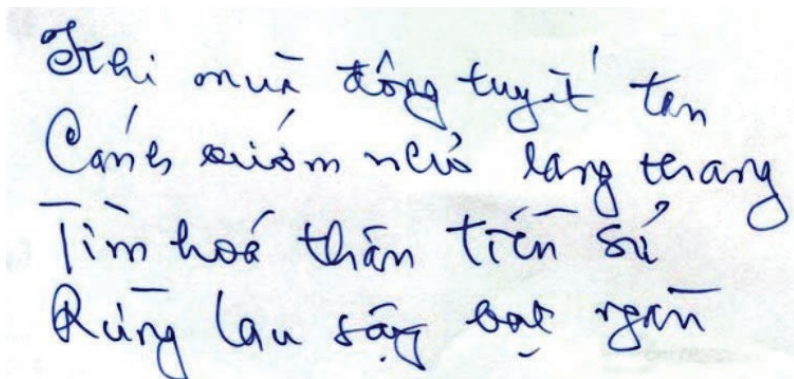 Khi mùa đông tuyết tan
Cánh bướm nhỏ lang thang
Tìm hoá thân tiền sử
Rừng lau sậy bạt ngàn